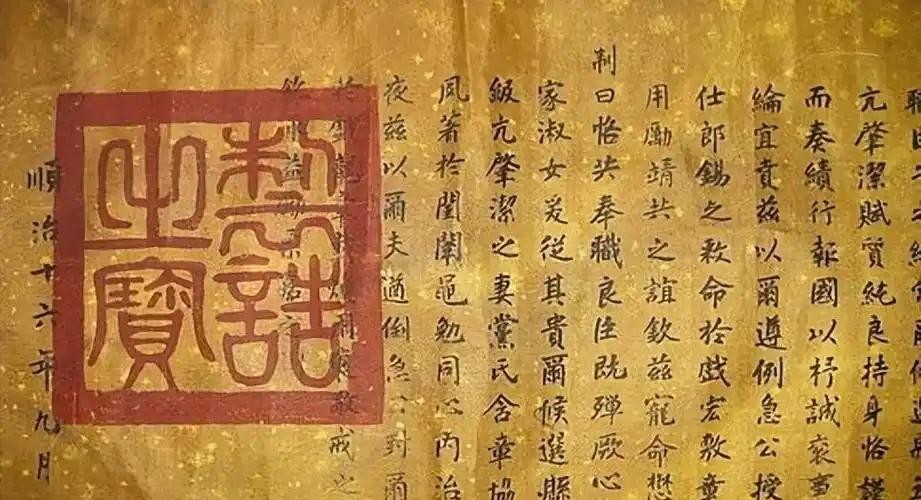 亢肇潔賦質純良持身恪
而奏績行報國以抒誠褒事
綸宜賁茲以爾遵例急公授
仕郎錫之敕命於戲宏敷章
用勵靖共之誼欽茲寵命懋
制曰恪共奉職良臣既殫厥心
家淑女爰從其貴爾候選縣
級亢肇潔之妻黨氏含章協
夙著於閨闈黽勉同心內治
夜茲以爾夫遒倒急公對爾
敬戒之
順治十六年九月
制誥之寶